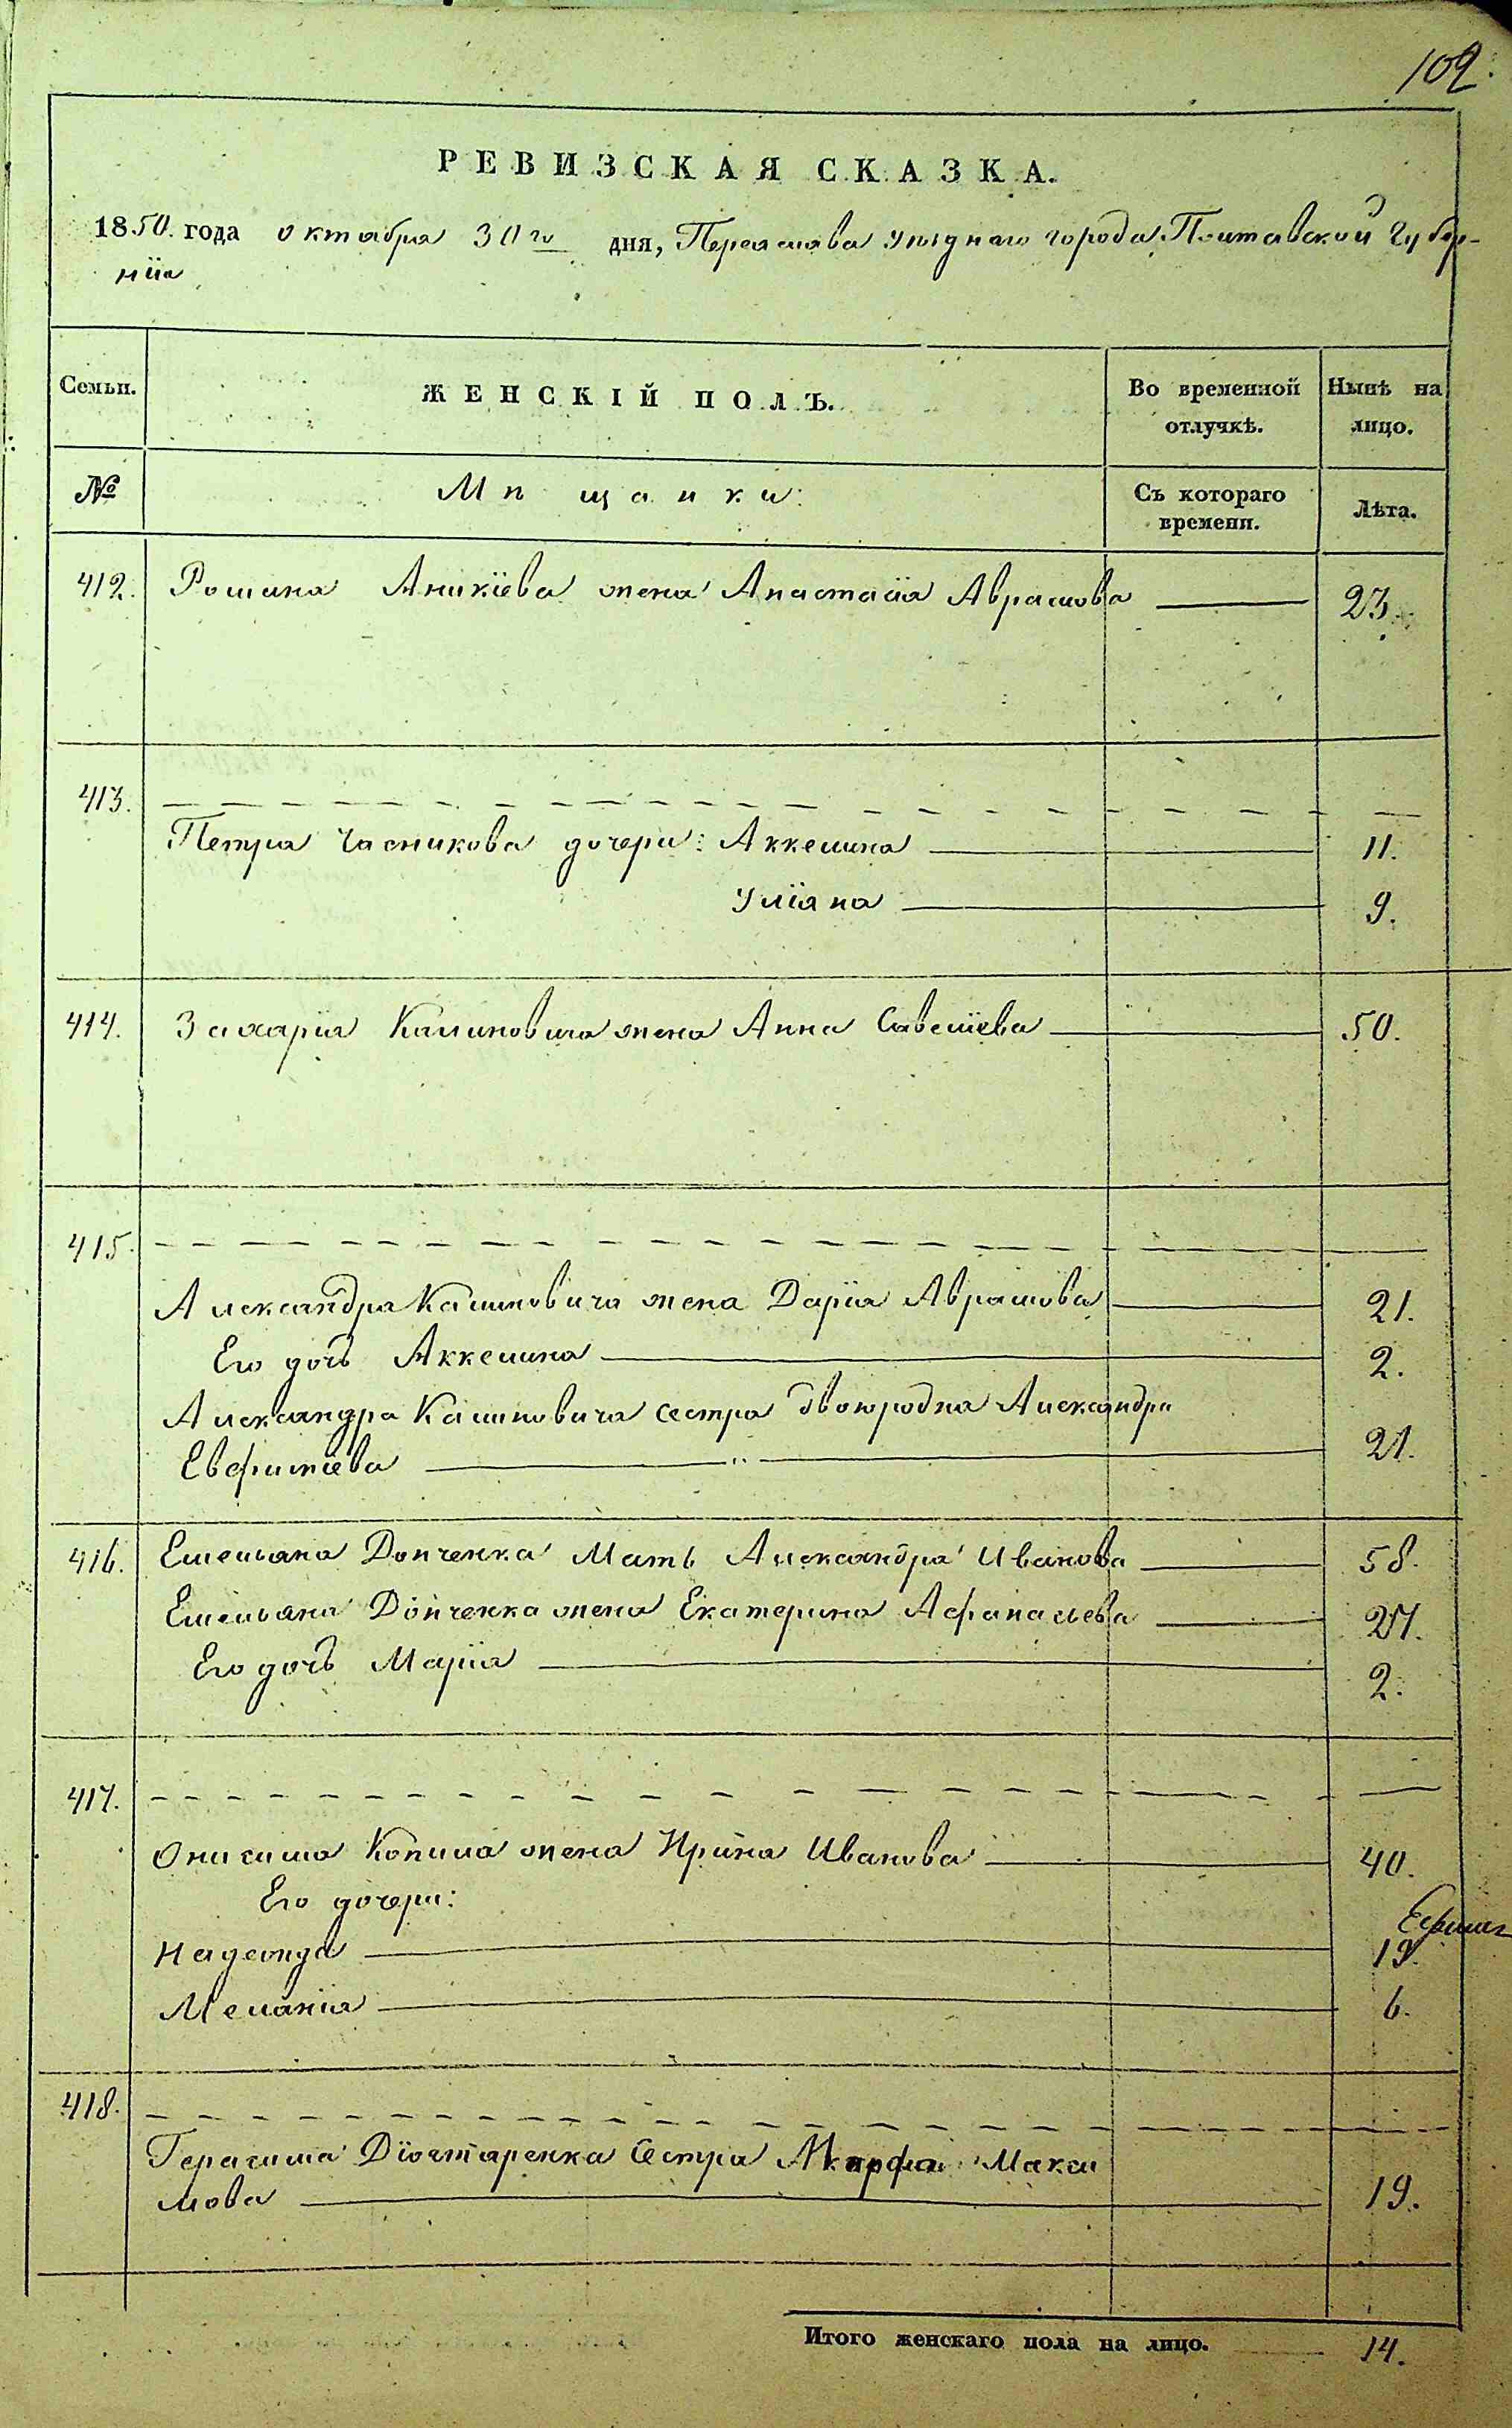 102.
РЕВИЗСКАЯ СКАЗКА.
1850. года октября 30го дня, Переяслава уѣзднаго города Полтавской Губер-
нiи
Семьи.
ЖЕНСКІЙ ПОЛЪ.
Во временной отлучкѣ.
Нынѣ на лицо.
№
Мѣщанки:
Съ котораго времени.
Лѣта.
412. Романа Аникіева жена Анастасія Аврамова 23.
413.
Петра Часникова дочери: Аккелина 11.
Уліяна 9.
414. Захарія Калиновича жена Анна Савеліева 50.
415.
Александра Калиновича жена Дарія Аврамова 21.
Его дочь Аккелина 2.
Александра Калиновича сестра двоюродна Александра
Евфиміева 21.
416. Емельяна Донченка Мать Александра Иванова 58.
Емельяна Донченка жена Екатерина Афанасьева 27.
Его дочь Марія 2.
417.
Онисима Копила жена Ирина Иванова 40.
Его дочери:
Надежда 19.
Меланія 6.
418.
Герасима Діхтяренка Сестра Марфа Макси
мова 19.
Итого женскаго пола на лицо. 14.